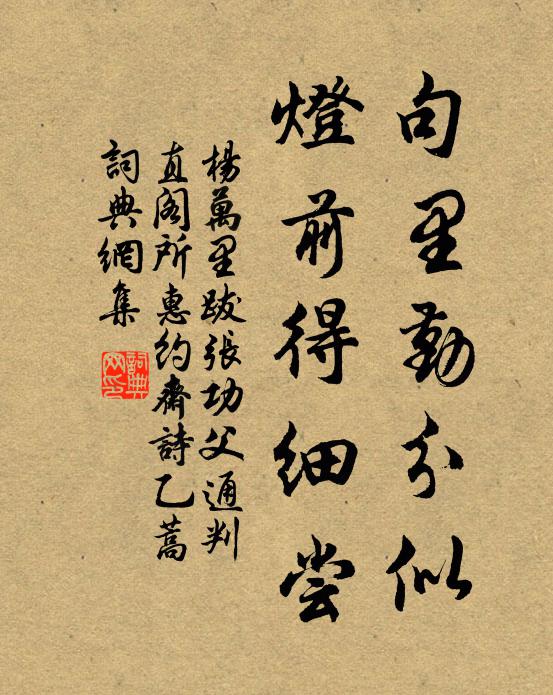 句里勤分似
燈前得细尝
楊萬里跋張功父通判
直阁所惠约齋詩乙藁
詞典網集
詞典網印